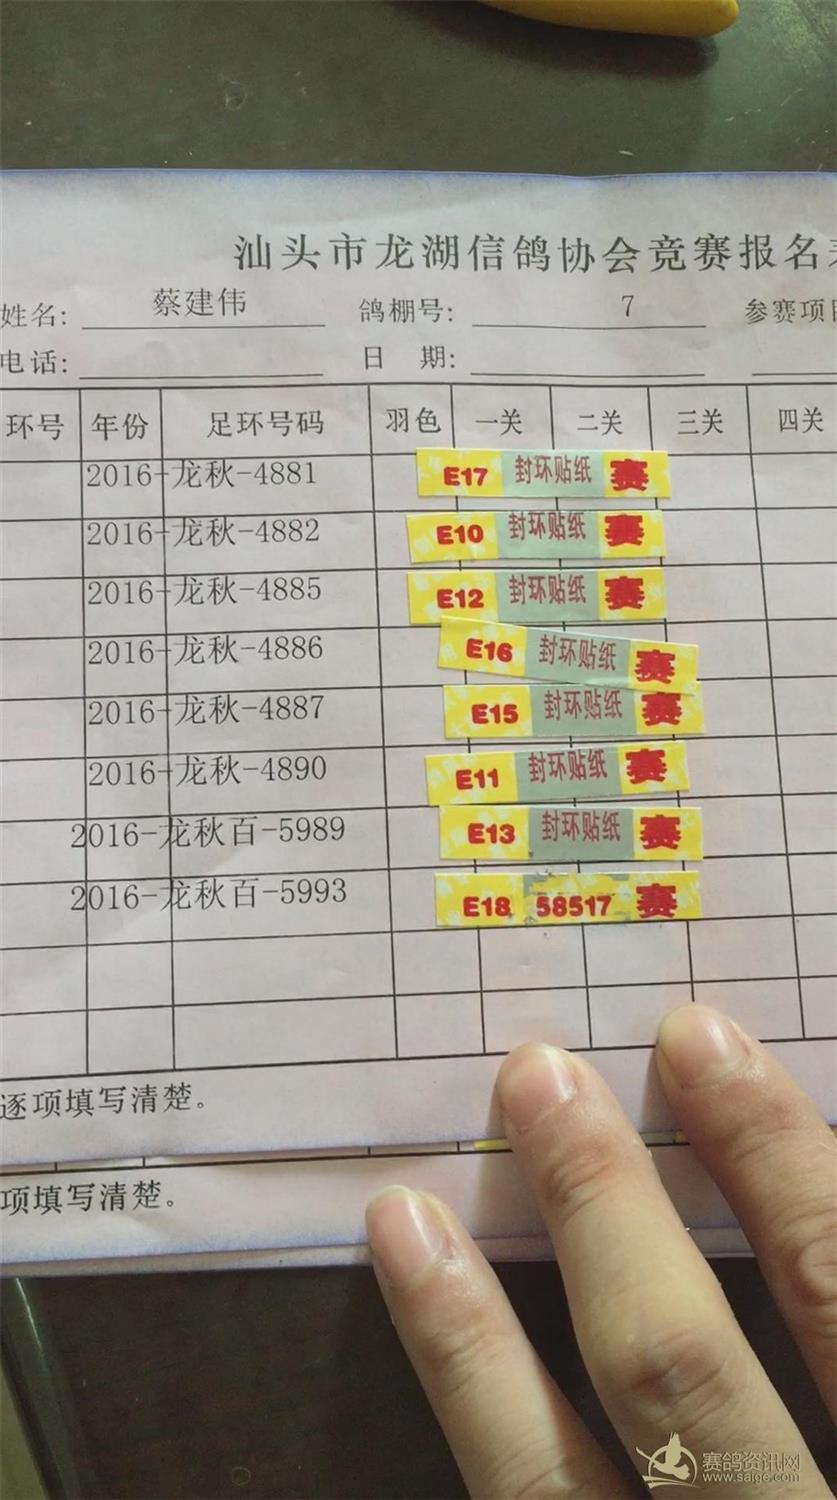 汕头市龙湖信鸽协会竞赛报名
姓名: 蔡建伟 鸽棚号: 7 参赛项目
电话: 日 期:
环号 年份 足环号码 羽色 一关 二关 三关 四关
2016-龙秋-4881 E17 封环贴纸 赛
2016-龙秋-4882 E10 封环贴纸 赛
2016-龙秋-4885 E12 封环贴纸 赛
2016-龙秋-4886 E16 封环贴纸 赛
2016-龙秋-4887 E15 封环贴纸 赛
2016-龙秋-4890 E11 封环贴纸 赛
2016-龙秋百-5989 E13 封环贴纸 赛
2016-龙秋百-5993 E18 58517 赛
逐项填写清楚。
项填写清楚。
赛鸽资讯网
www.saige.com